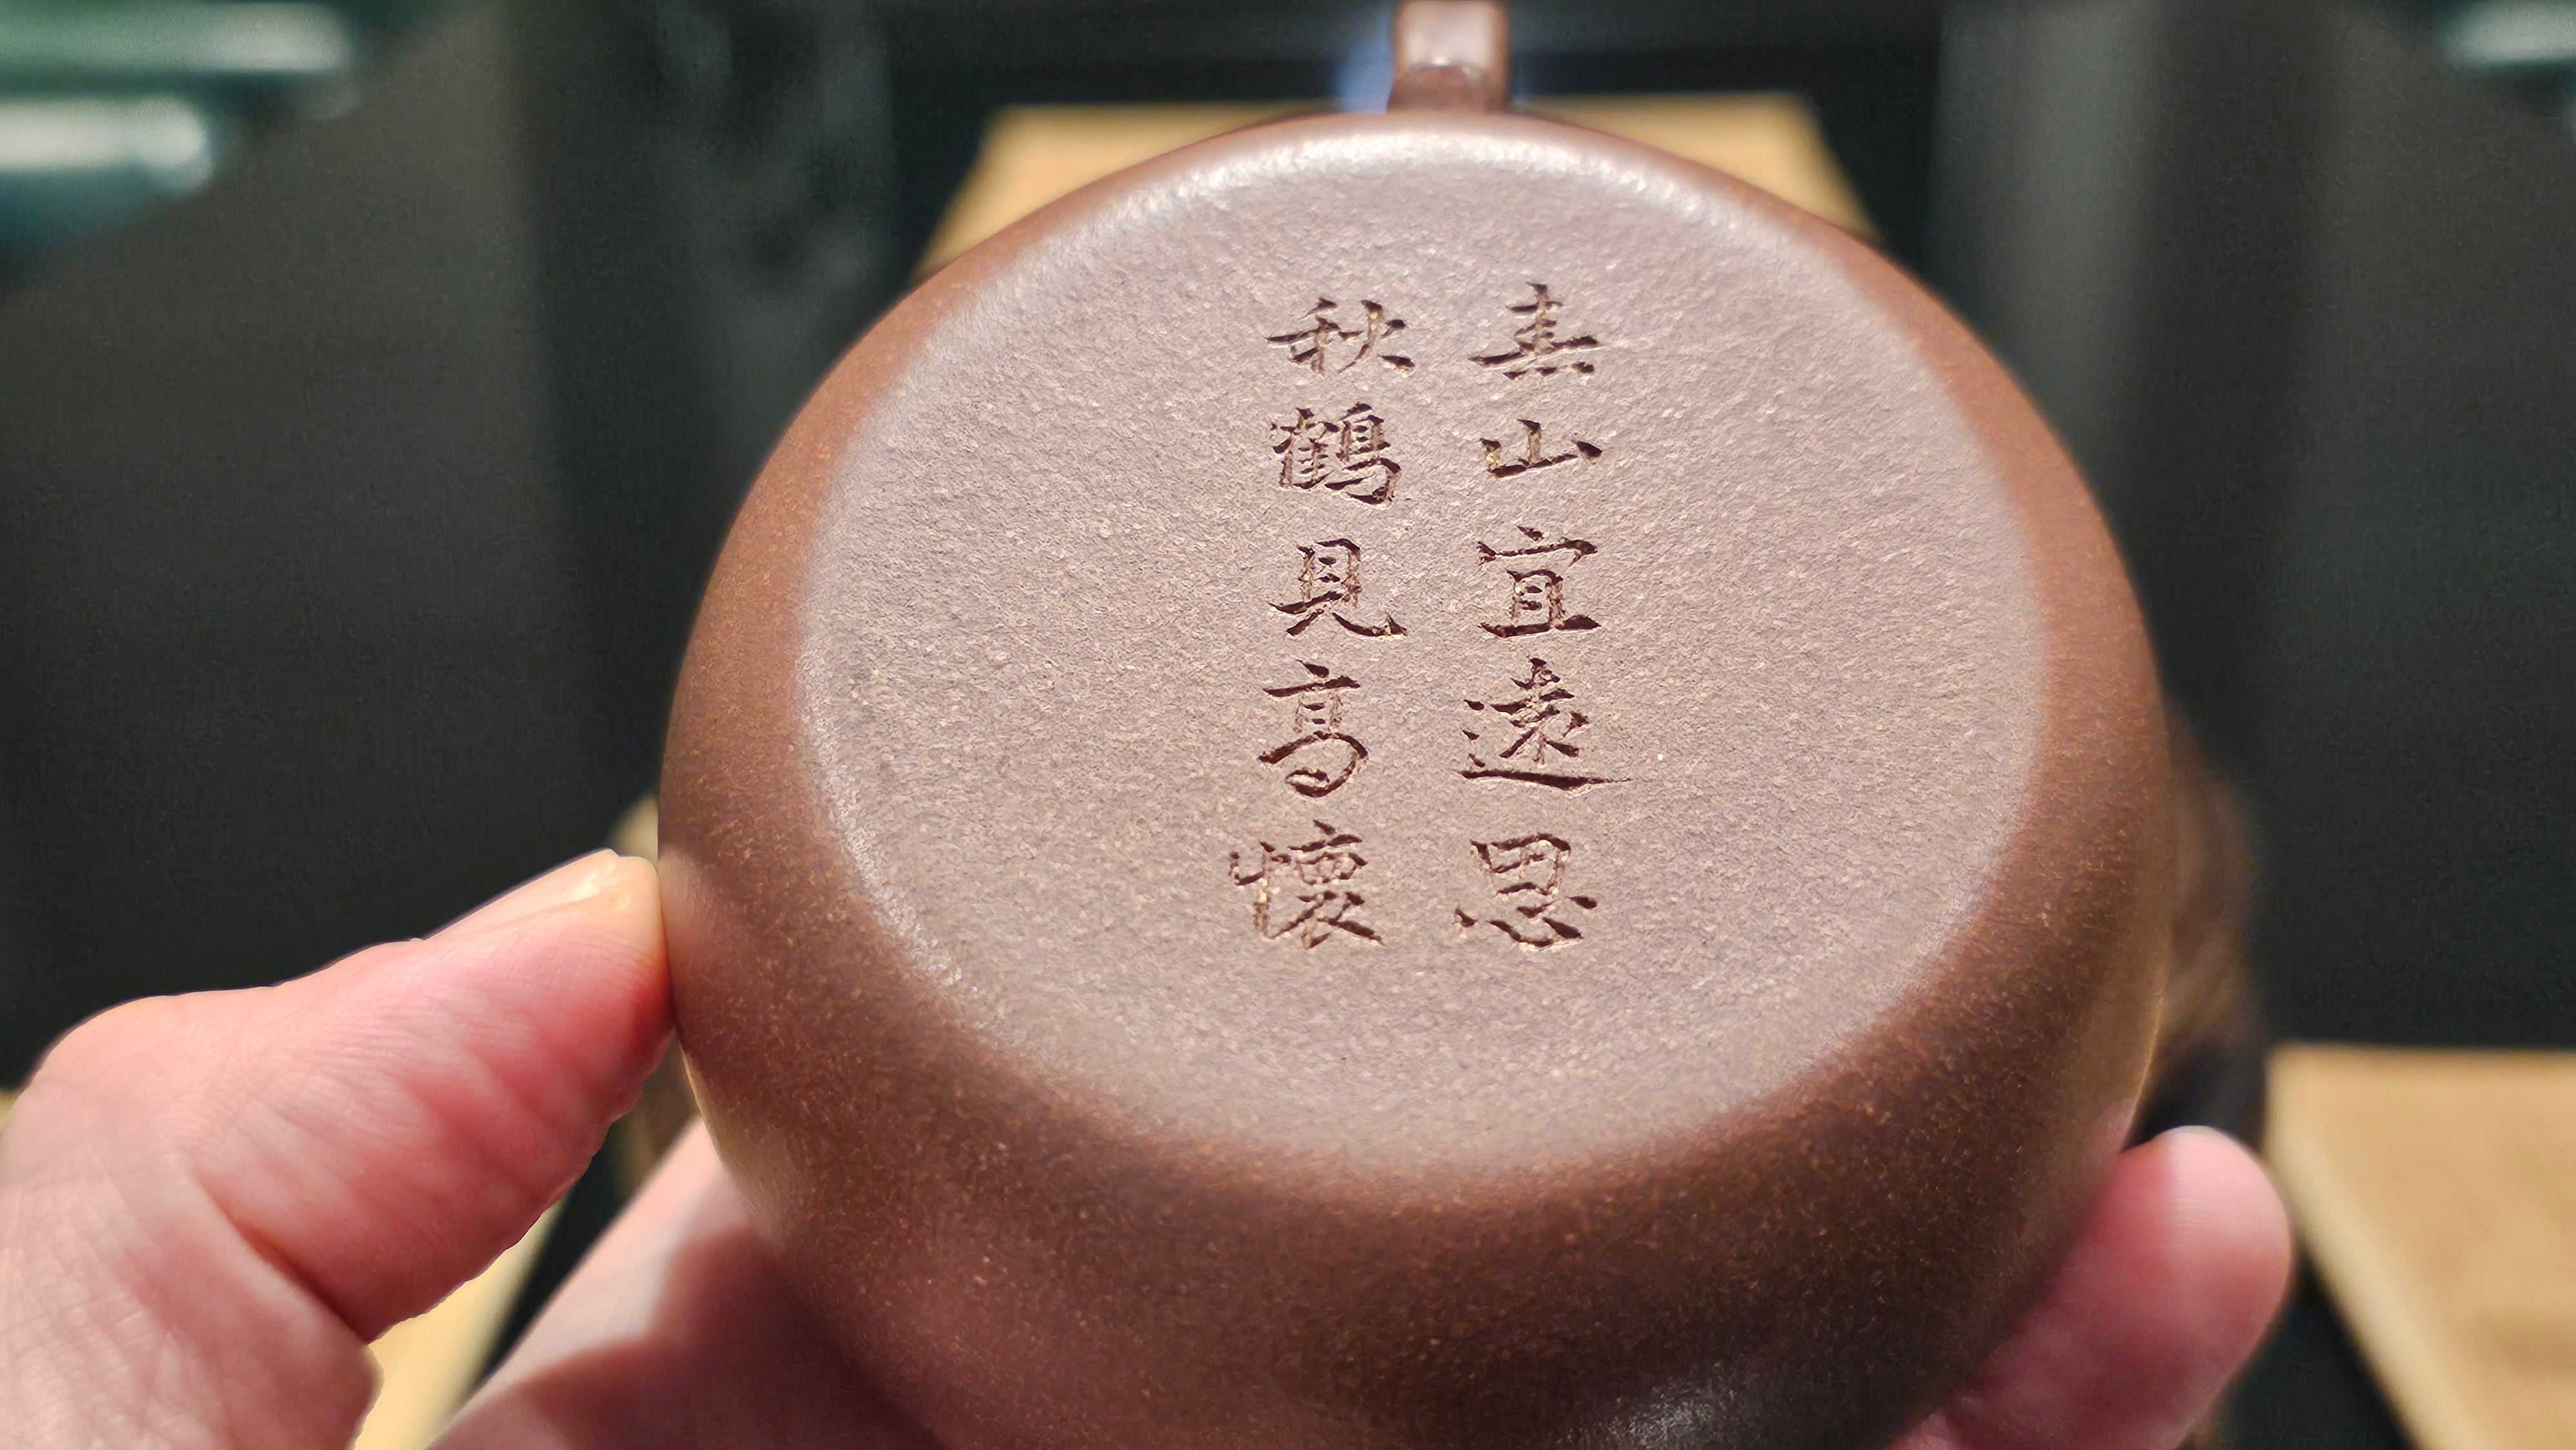 春山宜遠思
秋鶴見高懷